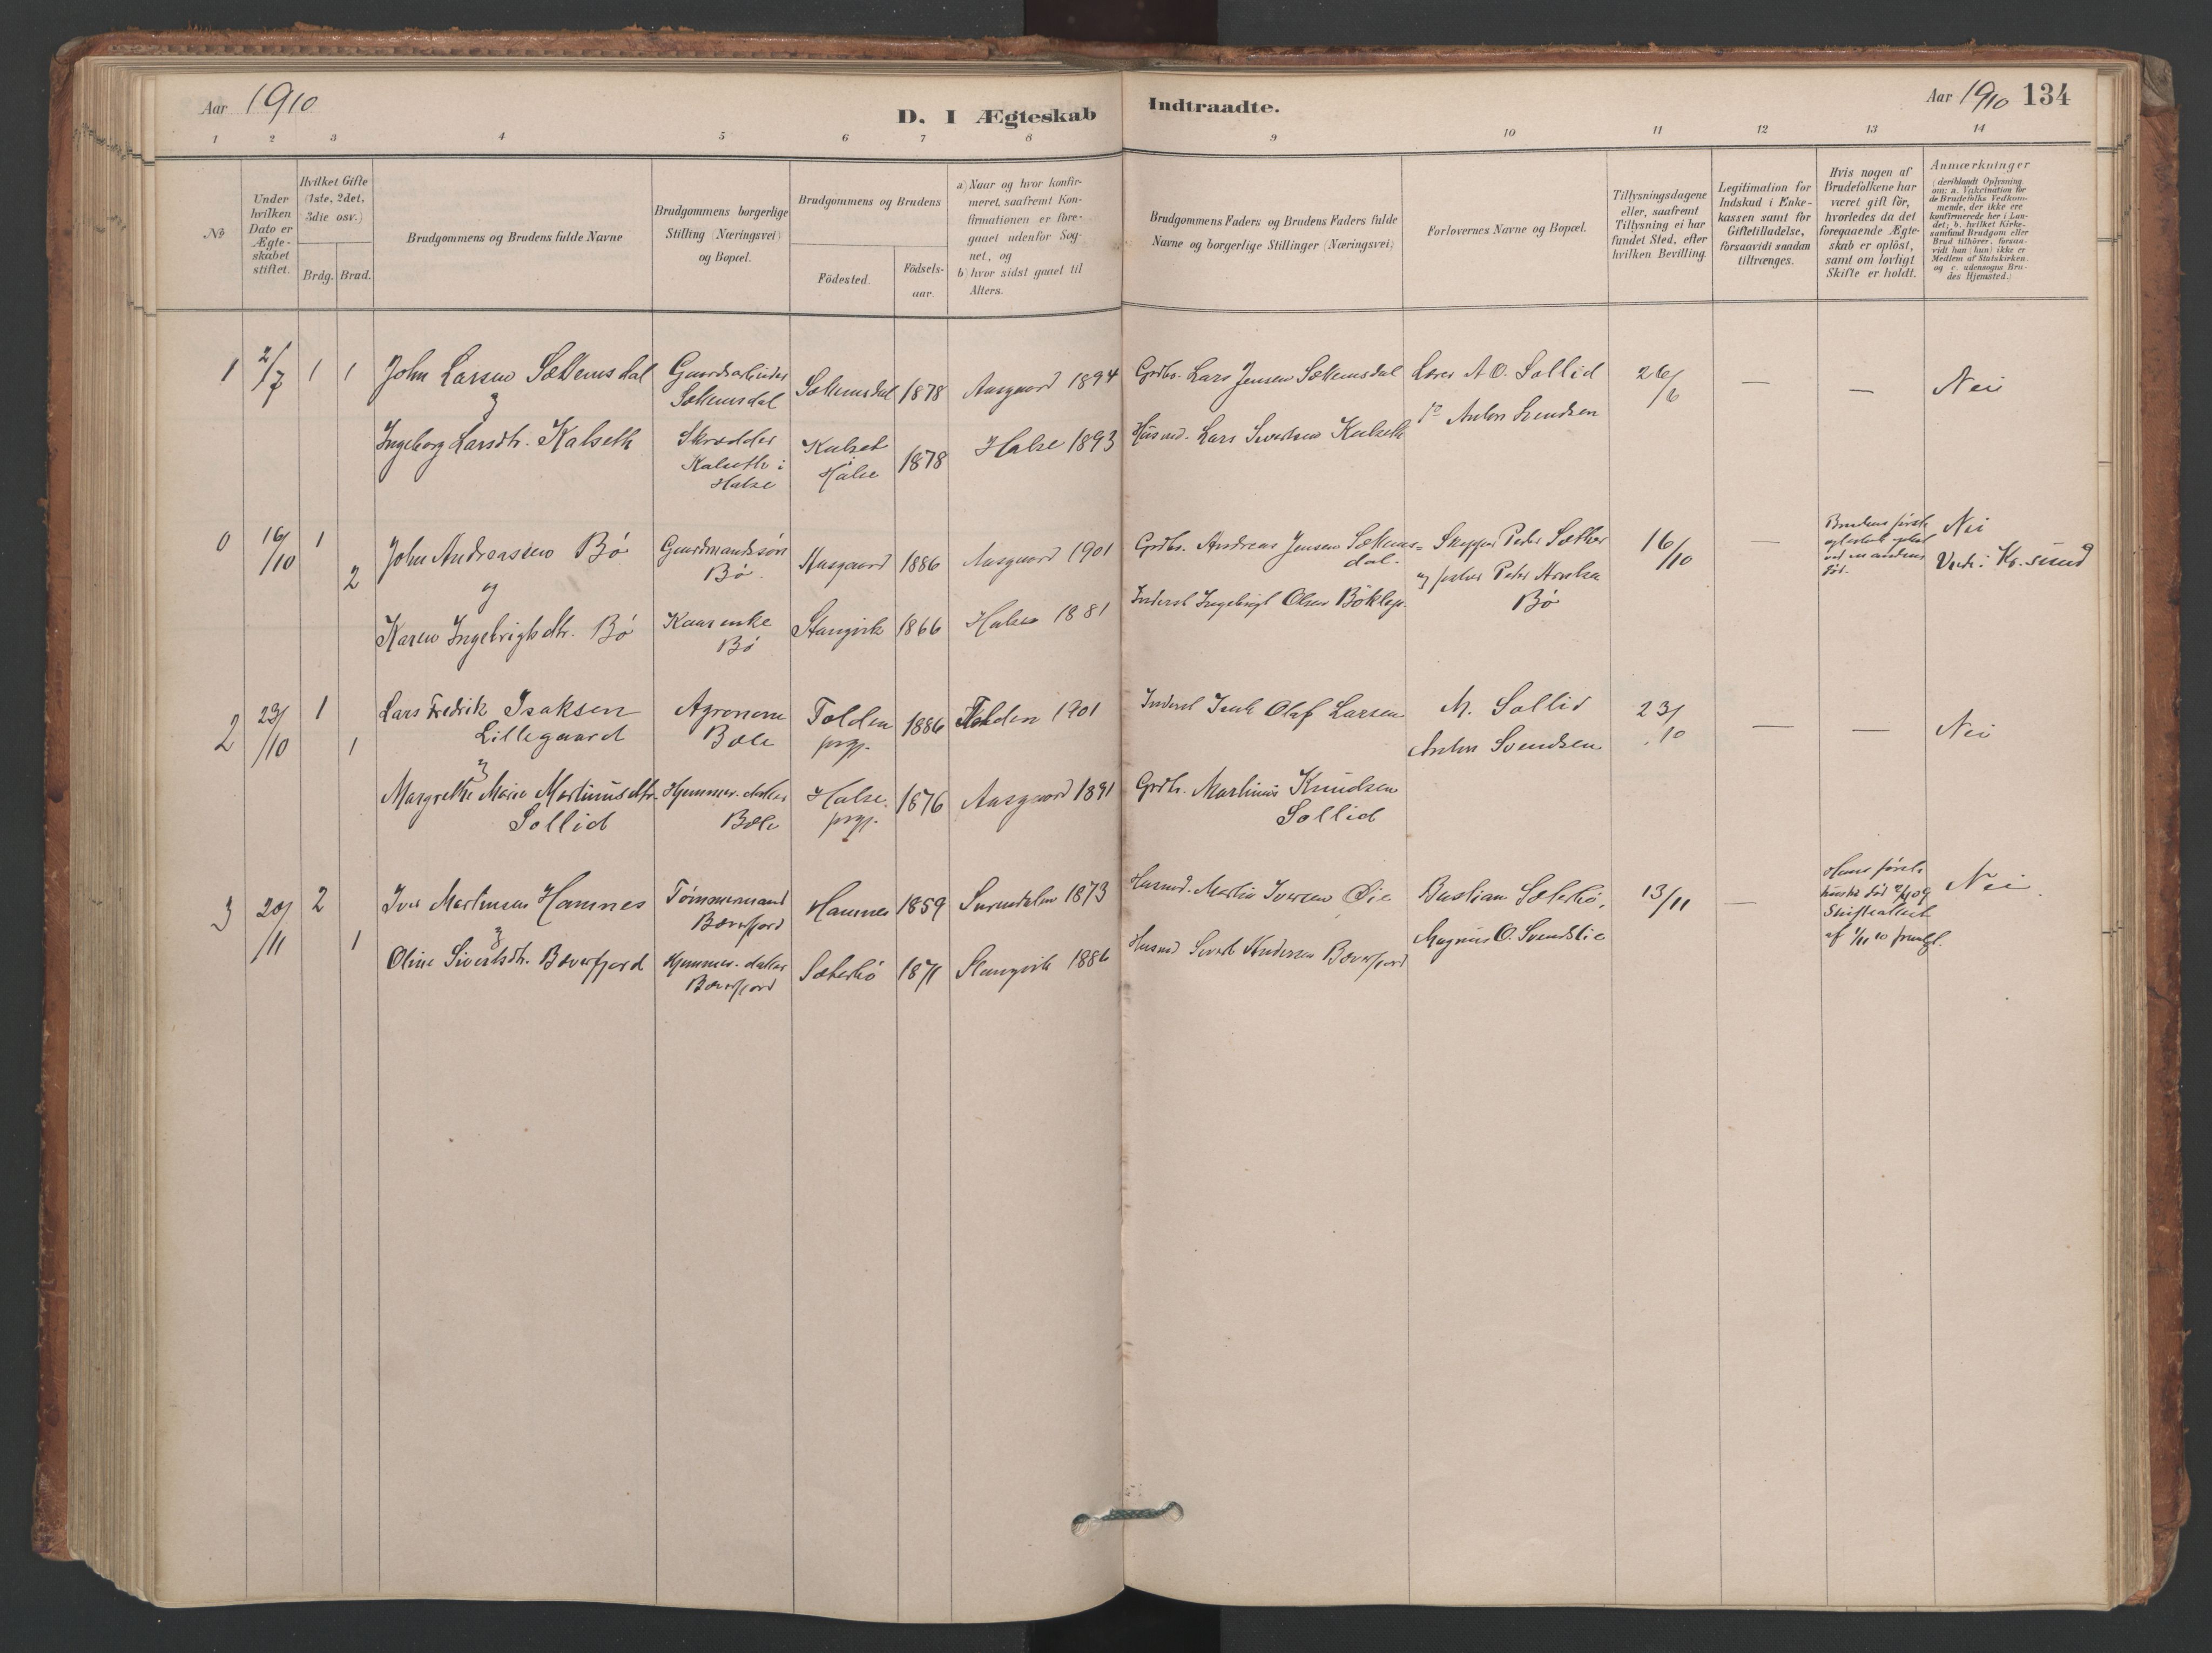 Aar 1910
D. I Ægteskab Indtraadte.
Aar 1910 134
1 2 3 4 5 6 7 8 9 10 11 12 13 14
No
Under hvilken Dato er Ægteskabet stiftet.
Hvilket Gifte (1ste, 2det, 3die osv.)
Brdg. Brud.
Brudgommens og Brudens fulde Navne
Brudgommens borgerlige Stilling (Næringsvei) og Bopæl.
Brudgommens og Brudens
Födested.
Födselsaar.
a) Naar og hvor konfirmeret, saafremt Konfirmationen er foregaaet udenfor Sognet, og
b) hvor sidst gaaet til Alters.
Brudgommens Faders og Brudens Faders fulde
Navne og borgerlige Stillinger (Næringsvei)
Forlovernes Navne og Bopæl.
Tillysningsdagene eller, saafremt Tillysning ei har fundet Sted, efter hvilken Bevilling.
Legitimation for Indskud i Enkekassen samt for Giftetilladelse, forsaavidt saadan tiltrænges.
Hvis nogen af Brudefolkene har været gift för, hvorledes da det foregaaende Ægteskab er oplöst, samt om lovligt Skifte er holdt.
Anmærkninger
(deriblandt Oplysning om: a. Vakcination for de Brudefolks Vedkommende, der ikke ere konfirmerede her i Landet; b. hvilket Kirkesamfund Brudgom eller Brud tilhörer, forsaavidt han (hun) ikke er Medlem af Statskirken, og c. udensogns Brudes Hjemsted.)
1 2/7 1 1 John Larsen Sættemsdal
Gaardsarbeider
Sættemsdal
Sættemsdal 1878 Aasgaard 1894
Grdbr. Lars Jensen Sættemsdal
Lærer A O. Sollid
26/6 — — Nei
Ingeborg Larsdtr. Kalseth
Kalseth i
Halse
Kalset
Halse
1878 Halse 1893
Husmd. Lars Sivertsen Kalseth
Anton Svendsen
0 16/10 1 2 John Andreassen Bø
og
Gaardmandssøn
Bø
Aasgaard 1886 Aasgaard 1901
Grdbr. Andreas Jensen Sættems=
dal.
Skipper Peder Sæther
16/10 —
Brudens første
ved mandens
død.
Nei
Viede i Kr. sund
Karen Ingebrigtsdtr. Bø
Kaarenke
Bø
Stangvik 1866 Halse 1881
Inderst Ingebrigt Olsen Bøklep.
Bø
2 23/10 1 1 Lars Fredrik Isaksen
Lillegaard
Agronom
Bæle
Tolden
prgj.
1886 Tolden 1901
Inderst Isak Olaf Larsen
M. Sollid
Anton Svendsen
23/10 — — Nei
Margrethe Marie Martinusdtr.
Sollid
Hjemmev. datter
Bæle
Halse
prgj.
1876 Aasgaard 1891
Grdbr. Martinus Knudsen
Sollid
3 20/11 2 1 Iver Martinsen Hamnes
Tømmermand
Bæverfjord
Hamnes 1859 Surendalen 1873
Husmd. Martin Iversen Øie
Bastian Sæterbø,
Magnus O. Svendslie
13/11 —
Hans første
hustru død 2/4 09
Skifteattest
af 1/11 10 fremlgt.
Nei
Oline Sivertsdtr. Bæverfjord
Hjemmev. datter
Bæverfjord
Sæterbø 1871 Stangvik 1886
Husmd Sivert Andersen Bæverfjord